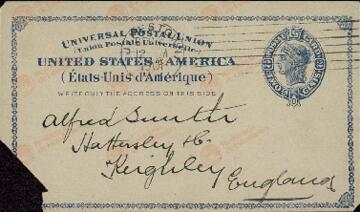 UNIVERSAL POSTAL UNION
(Union Postale Universelle)
UNITED STATES AMERICA
(États-Unis d'Amérique)
WRITE ONLY THE ADDRESS ON THIS SIDE
Alfred Smith
Hattersley &c.
Keighley
England